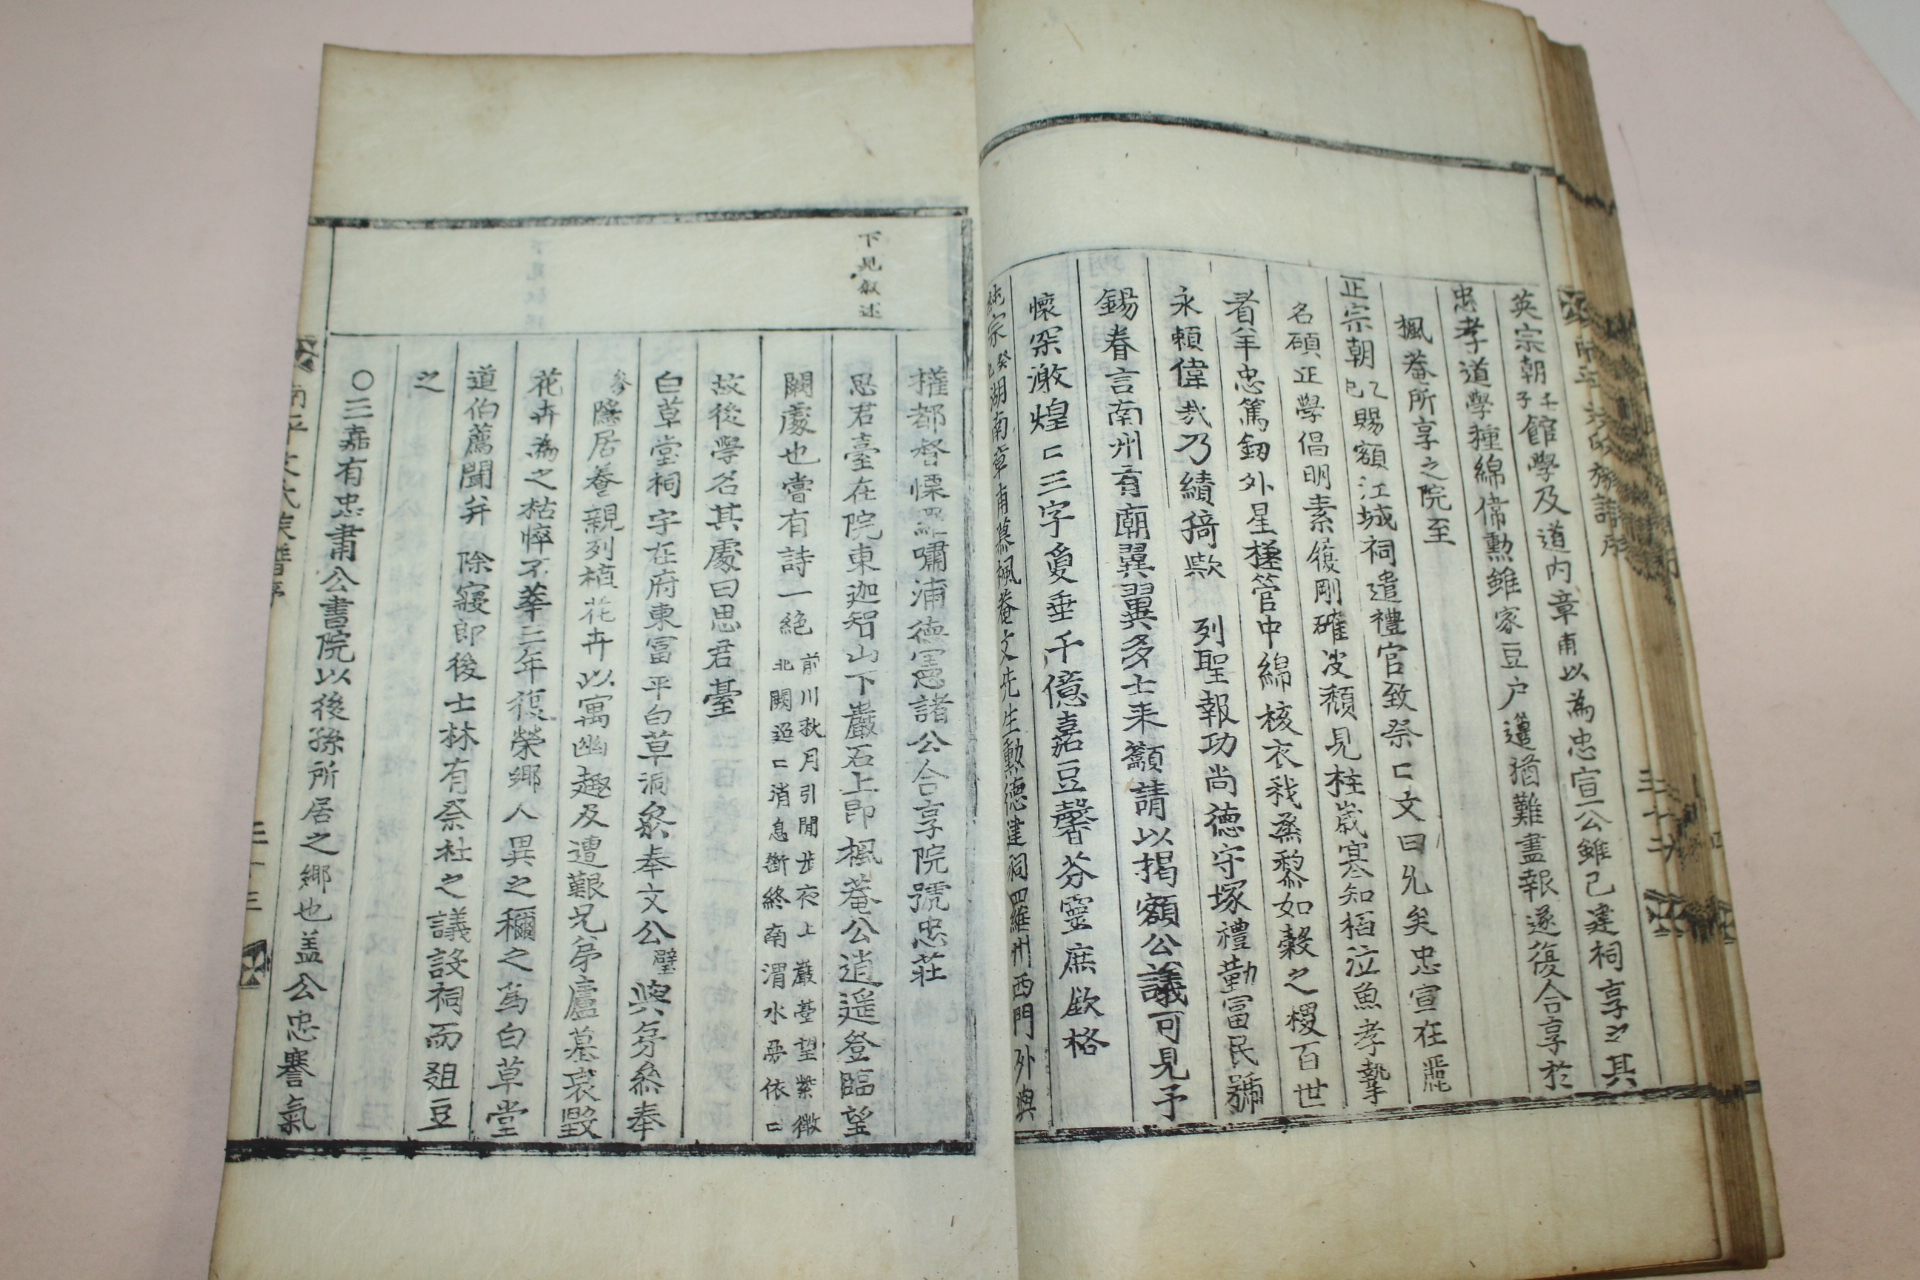 英宗朝壬子館學及道內章甫以為忠宣公雖已建祠享之其
忠孝道學種綿偉勲雖家豆户籩猶難盡報遂復合享於
楓菴所享之院至
正宗朝乙巳賜額江城祠遣禮官致祭
文曰允矣忠宣在麗
名碩正學倡明素履剛確波頹見柱歲寒知栢泣魚孝摯
看羊忠篤釰外星槎管中綿核衣我烝黎如穀之稷百世
永賴偉哉乃績猗歟 列聖報功尚德守塚禮勤富民號
錫眷言南州有廟翼翼多士来籲請以揭額公議可見予
懷深激煌〻三字爰垂千億嘉豆馨芬靈庶歆格
純宗癸巳湖南章甫慕楓菴文先生勲德建祠羅州西門外與
下見叙述
權都督慄羅嘯浦德憲諸公合享院號忠莊
思君臺在院東迦智山下巖石上即楓菴公逍遥登臨望
闕處也嘗有詩一絕前川秋月引閒步夜上巖臺望紫微
北闕迢〻消息斷終南渭水兩依〻
故後學名其處曰思君臺
白草堂祠宇在府東富平白草洞叅奉文公璧與弟叅奉
隱居養親列植花卉以寓幽趣及遭艱兄弟廬墓哀毀
花卉為之枯悴不華三年復榮鄉人異之稱之為白草堂
道伯薦聞并 除寢郎後士林有祭社之議設祠而俎豆
之
〇三嘉有忠肅公書院以後孫所居之鄉也盖公忠謇氣
南平文氏族譜序
三十三